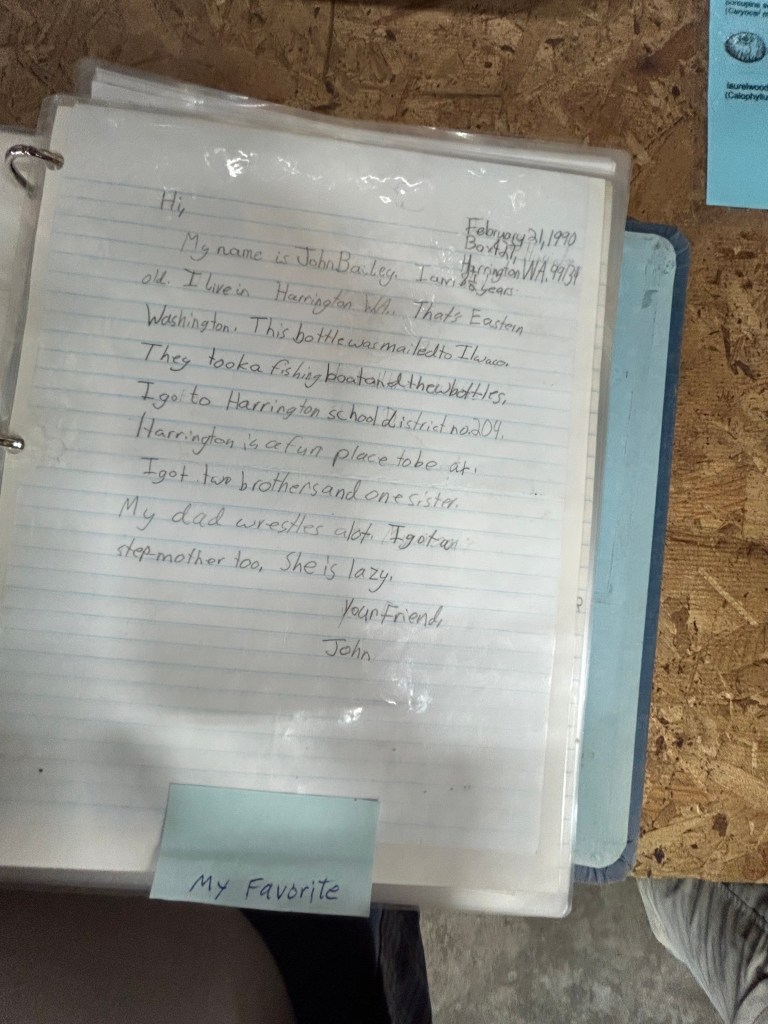 porcupine
(Caryocar
laurelwood
(Calophyllu
Hi,
February 21, 1990
Box
Harrington WA. 99134
My name is John Bailey. I am years
old. I live in Harrington WA. That's Eastern
Washington. This bottle was mailed to Ilwaco.
They took a fishing boat and thew bottles.
I go to Harrington school District no. 204.
Harrington is a fun place to be at.
I got two brothers and one sister.
My dad wrestles alot. I got a
step-mother too. She is lazy.
Your Friend,
John
My Favorite